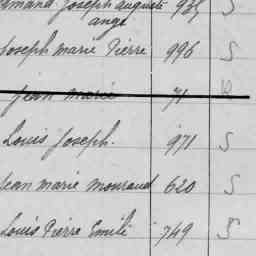 Armand Joseph Auguste 935 S
ange
Joseph Marie Pierre 996 S
Jean Marie 71
Louis Joseph. 971 S
Jean Marie Mouraud 620 S
Louis Pierre Emile 749 S